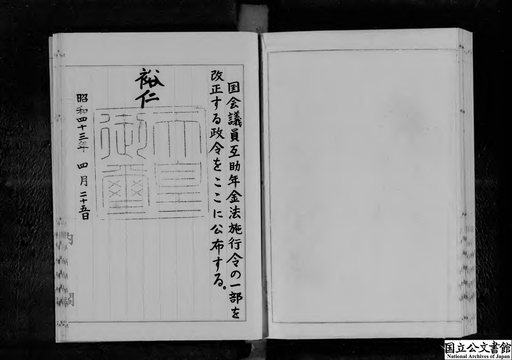 国会議員互助年金法施行令の一部を
改正する政令をここに公布する。
裕仁
天皇
御璽
昭和四十三年 四月二十五日
内閣
国立公文書館
National Archives of Japan